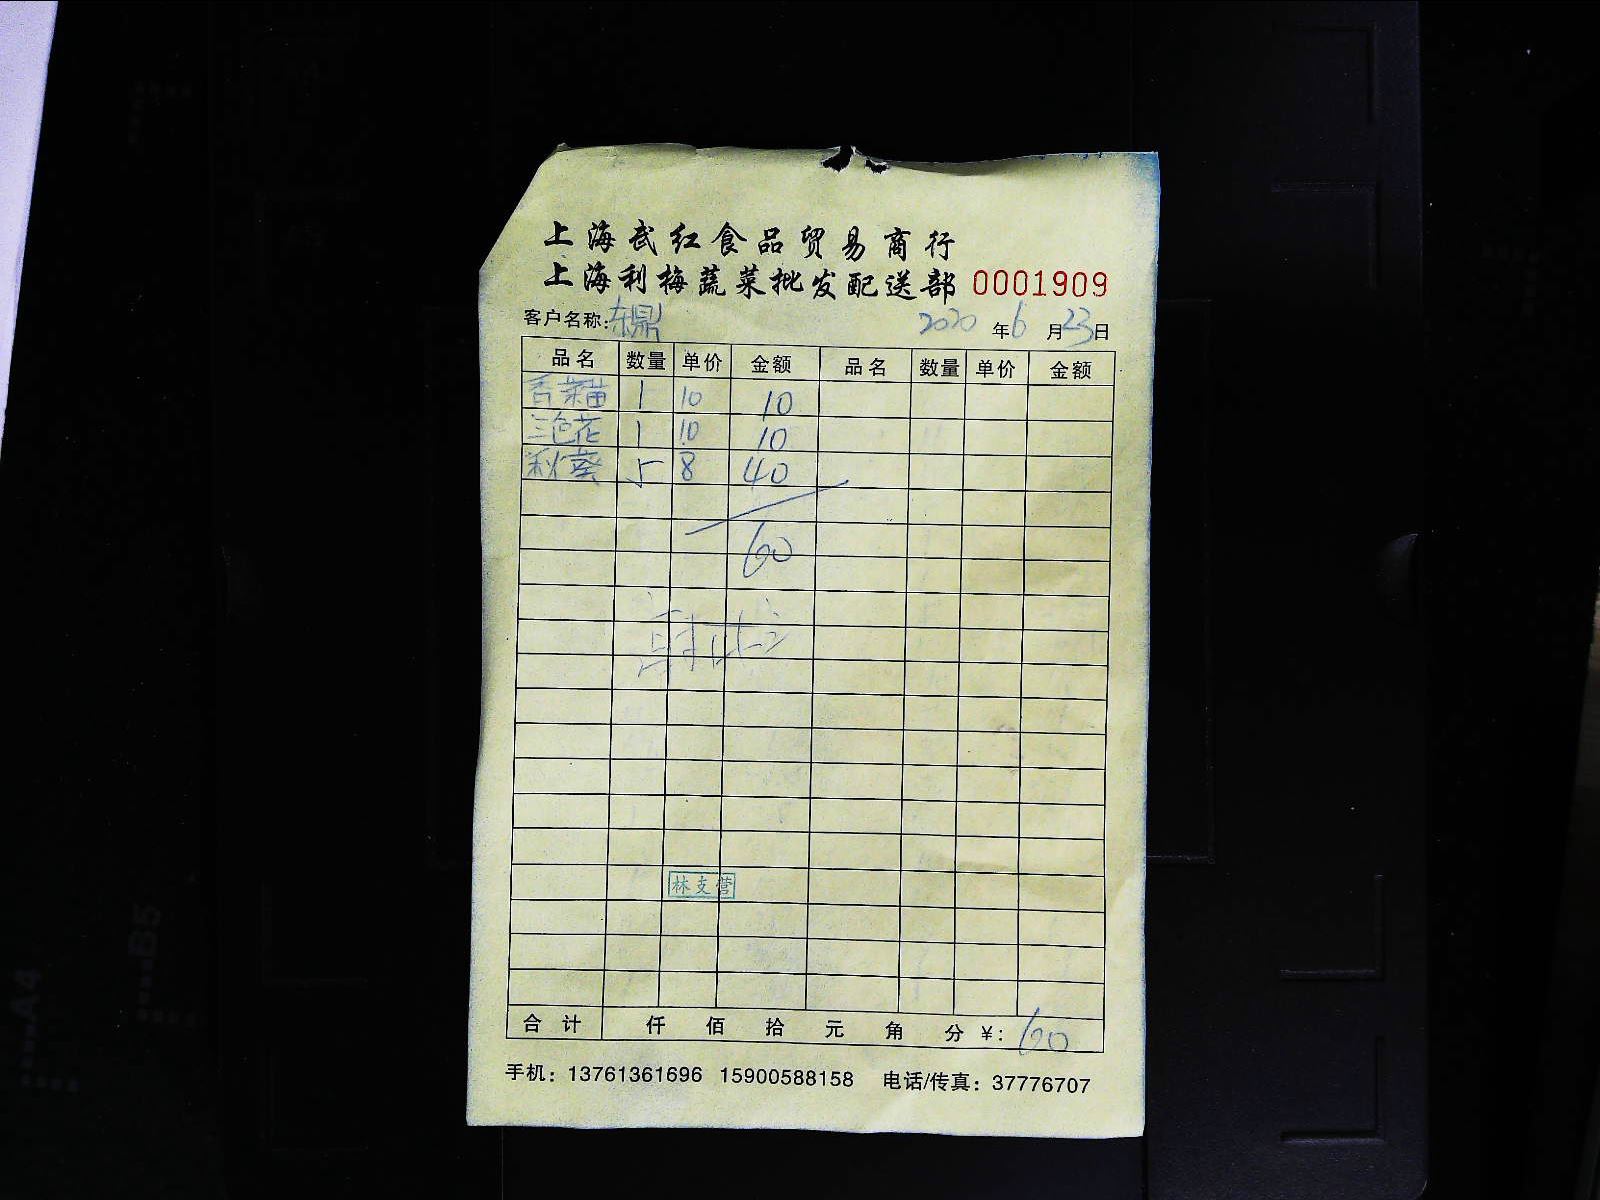 上海武红食品贸易商行
上海利梅蔬菜批发配送部 0001909
客户名称：东鼎 2020 年 6 月 23 日
品名 数量 单价 金额 品名 数量 单价 金额
香菜苗 1 10 10
三色花 1 10 10
秋葵 5 8 40
60
林支营
合计 仟 佰 拾 元 角 分 ¥: 60
手机：13761361696 15900588158 电话/传真：37776707
A4
B5